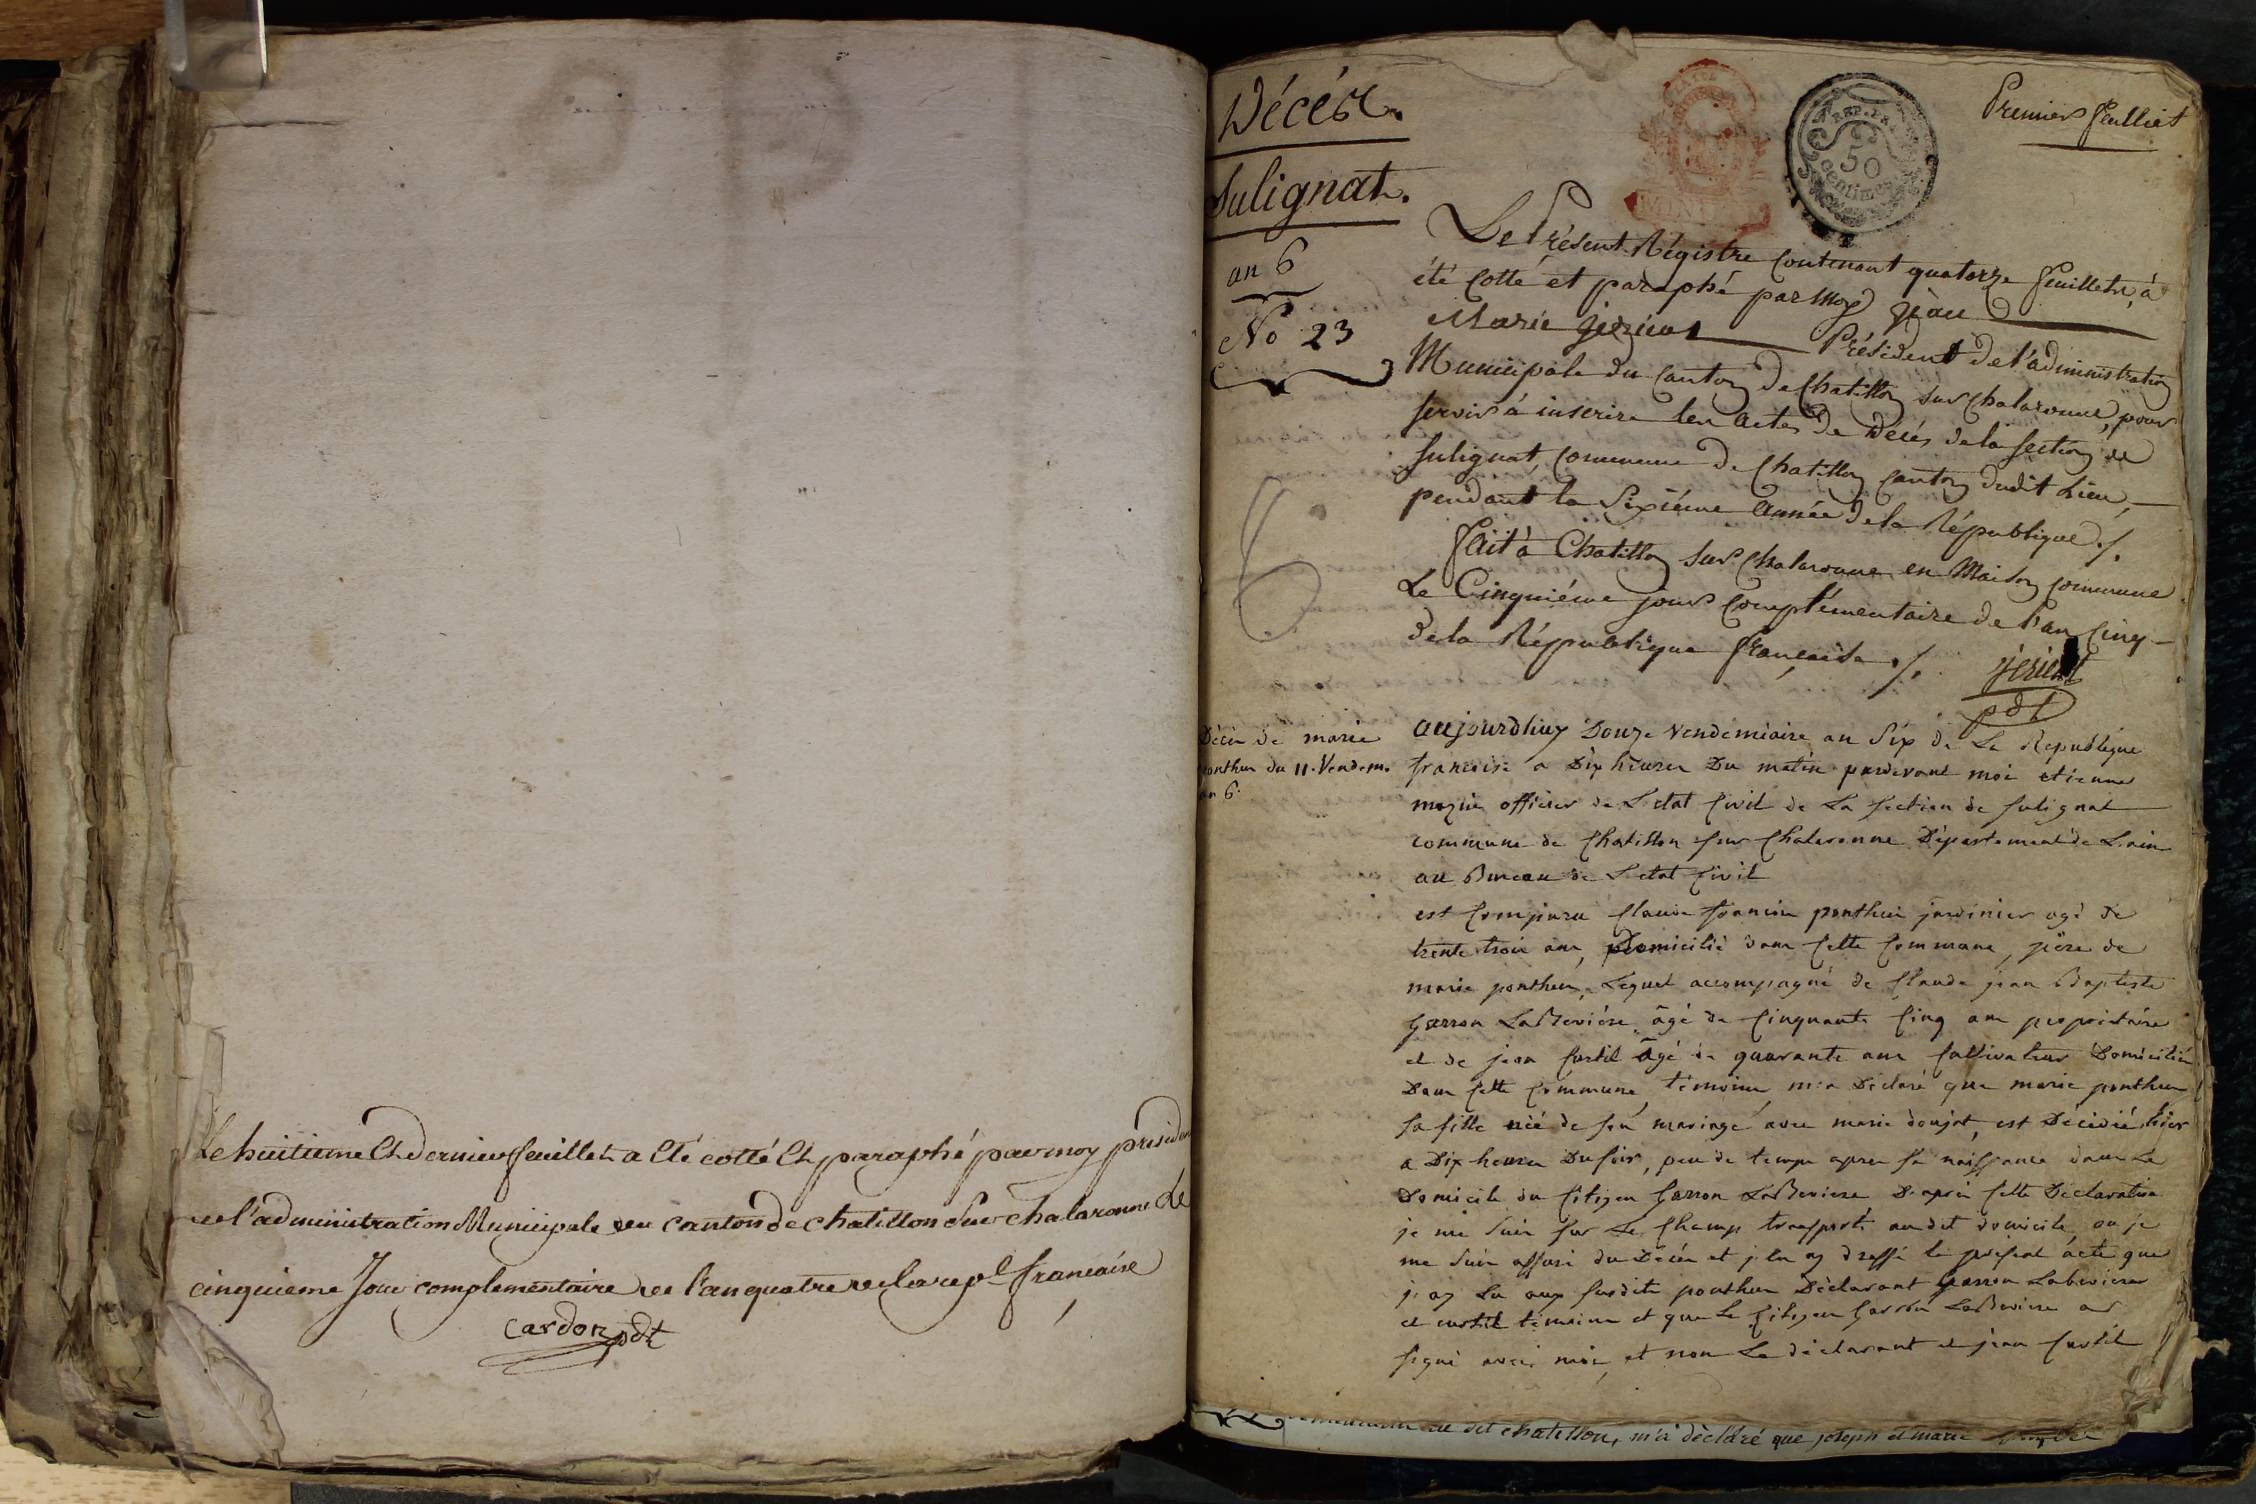 Le huitieme Et dernier feuillet a Eté cotté Et paraphé par moy presiden
de l'administration Municipale du canton de chatillon Sur chalaronne Le
cinquieme Jour complementaire de l'an quatre de la repe francaise
Cardon pdt
Décés.
Sulignat.
an 6
No 23
Premier feulliet
REP. FRA
50
centimes
Le Présent Régistre Contenant quatorze feuillets, à
été Cotté et paraphé par Moy Jean
Marie Président de l'administration
Municipale du Canton de Chatillon sur Chalaronne, pour
servir à inscrire les actes de Décés de la section de
Sulignat, Commune de Chatillon Canton dudit Lieu,
pendant la Sixiéme année de la République ./.
fait à Chatillon sur Chalaronne en Maison Commune
Le Cinquiéme jour Complémentaire de l'an Cinq
de la République française ./.
pdt
Décés de marie
ponthus du 11. Vendem.
an 6.
aujourdhuy Douze Vendemiaire an Six de La Republique
francoise a Dix heures Du matin pardevant moi etienne
officier de L'etat Civil de La section de Sulignat
commune de Chatillon sur Chalaronne Département de L'ain
au Bureau de L'etat Civil
est Comparu Claude francois ponthus jardinier agé de
trente trois ans, Domicilié dans Cette Commune, père de
marie ponthus, Lequel accompagné de Claude jean Baptiste
Garron LaBeviére, âgé de Cinquante Cinq ans propriétaire
et de jean Curtil Âgé de quarante ans Cultivateur Domiciliés
Dans Cette Commune, témoins, m'a Déclaré que marie ponthus
sa fille née de son mariage avec marie donjot, est Décédée hier
a Dix heures Du soir, peu de temps apres sa naissance dans Le
Domicile du Citoyen Garron LaBeviere D'après Cette Déclaration
je me suis sur Le Champ transporté au dit domicile, ou je
me suis assuré du Décés et j'en ay dressé le présent acte que
j'ay Lu aux susdits ponthus Déclarant Garron Labeviere
et curtil témoins et que Le Citoyen Garron LaBeviere a
signé avec moi, et non Le déclarant et jean Curtil
de dit chatillon, m'a dèclaré que joseph et marie